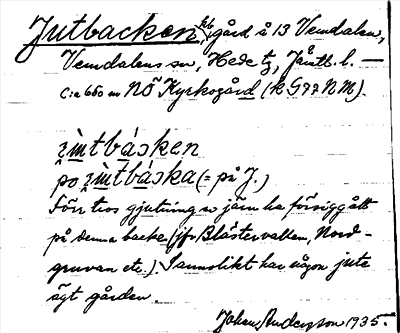 Jutbacken, gård å 13 Vemdalen,
Vemdalens sn, Hede tg, Jämtl. l. —
c:a 650 m NÖ Kyrkogård (kG 77 NM).
po (= på J.)
Förr tros gjutning av järn ha försiggått
på denna backe (jfr Blästervallen, Nord-
gruvan etc.) Sannolikt har någon jute
ägt gården.
Johan Anderson 1935.